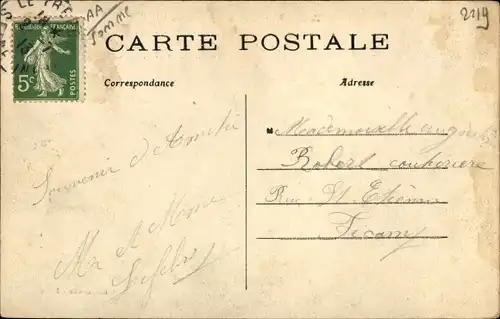 2219
Somme
LE TRE
REPUBLIQUE FRANÇAISE
5c
POSTES
CARTE POSTALE
Correspondance
Adresse
Souvenir d'Amitié
Mr et Mme
Lefebvre
Mademoiselle
Robert couturiere
Rue St Etienne
Fecamp